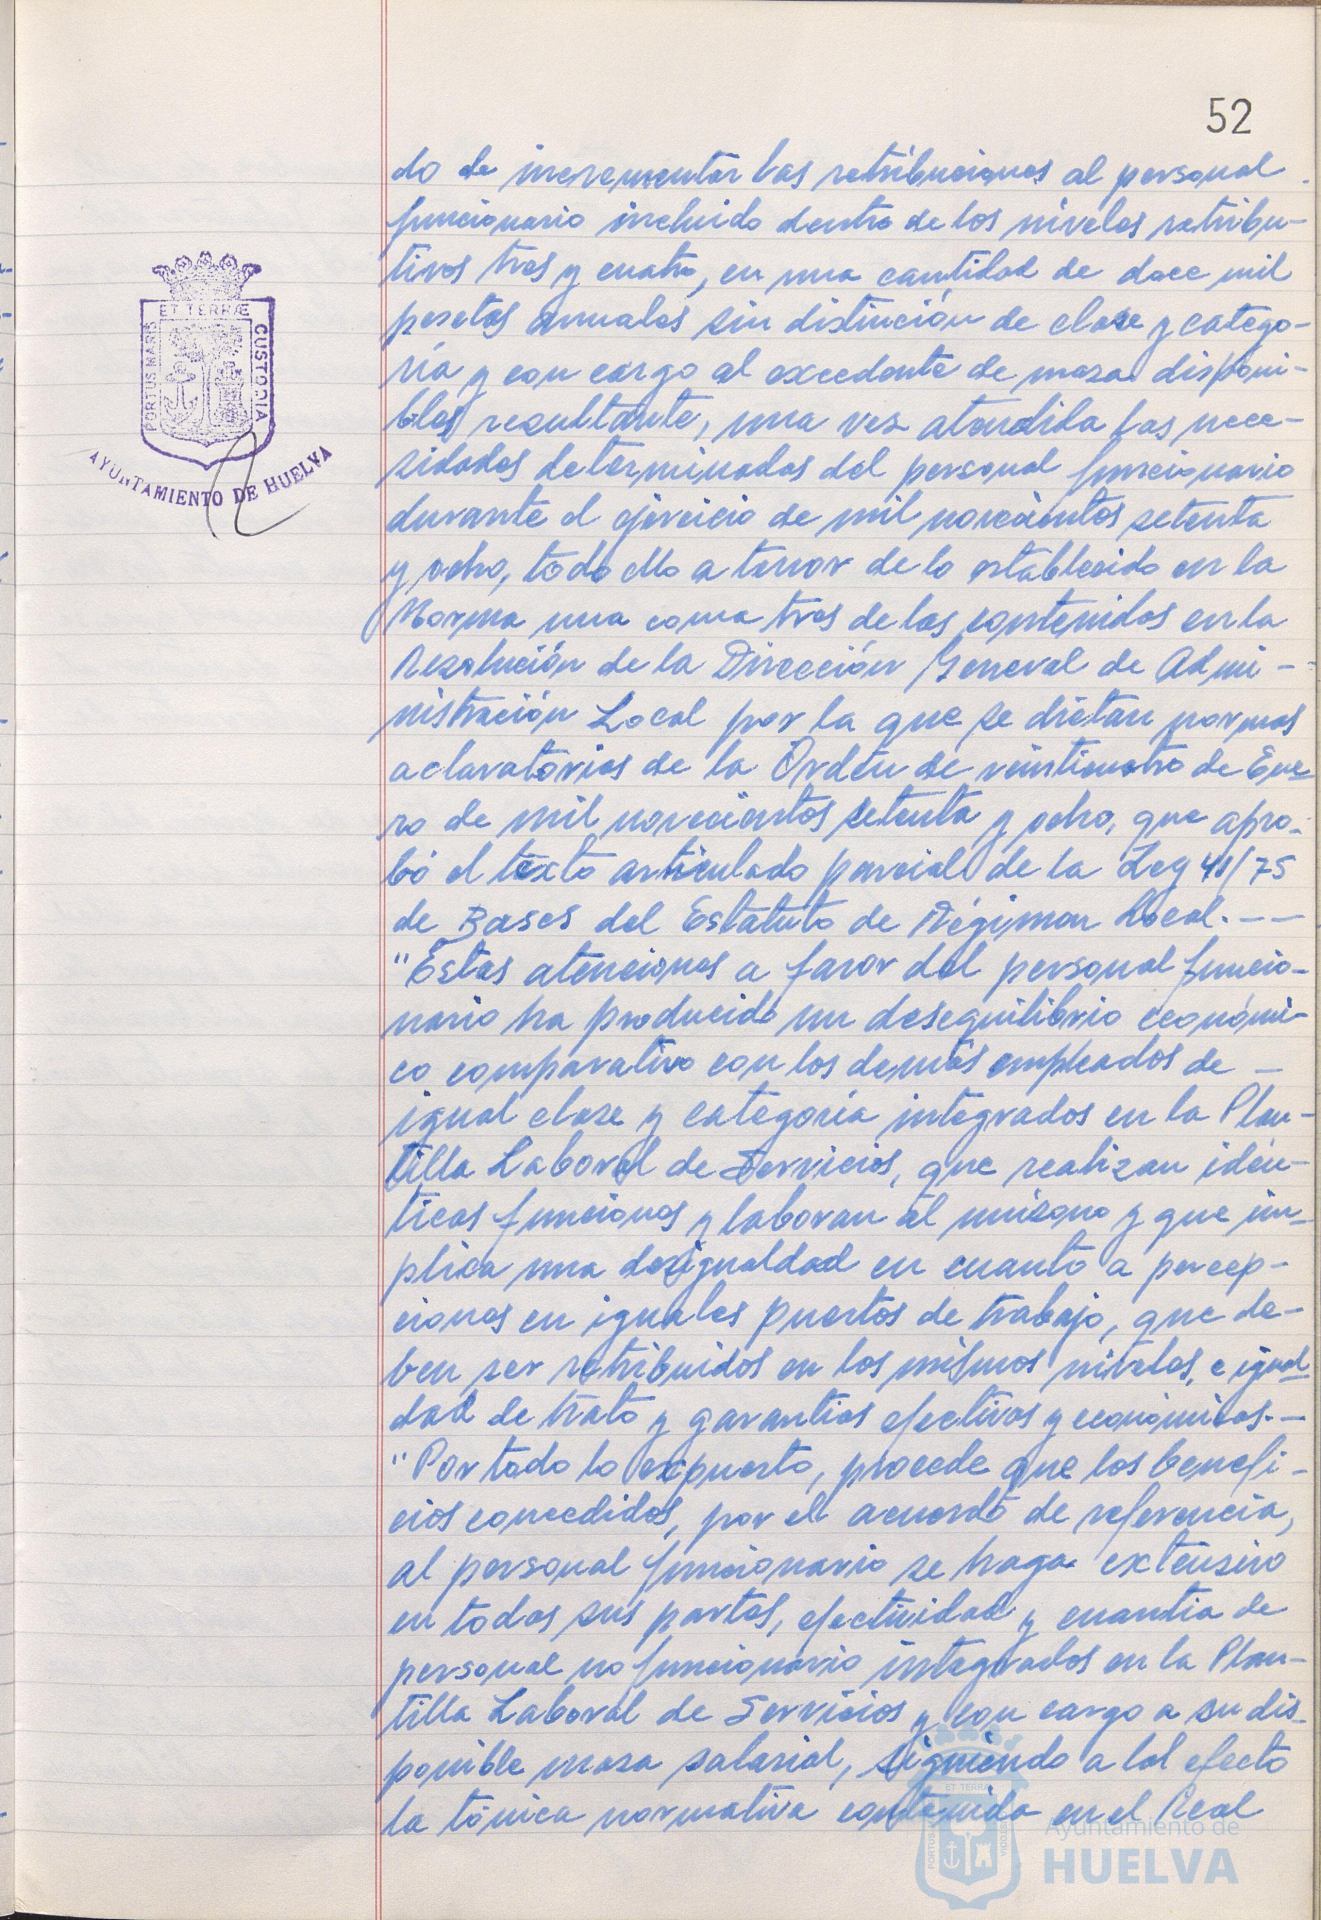 52
do de incrementar las retribuciones al personal
funcionario incluido dentro de los niveles retribu-
tivos tres y cuatro, en una cantidad de doce mil
pesetas anuales sin distinción de clase y catego-
ría y con cargo al excedente de masa disponi-
bles resultante, una vez atendida las nece-
sidades determinadas del personal funcionario
durante el ejercicio de mil novecientos setenta
y ocho, todo ello a tenor de lo establecido en la
Norma una coma tres de las contenidas en la
Resolución de la Dirección General de Admi--
nistración Local por la que se dictan normas
aclaratorias de la Orden de veinticuatro de Ene-
ro de mil novecientos setenta y ocho, que apro-
bó el texto articulado parcial de la Ley 41/75
de Bases del Estatuto de Régimen Local.--
"Estas atenciones a favor del personal funcio-
nario ha producido un desequilibrio económi-
co comparativo con los demás empleados de -
igual clase y categoría integrados en la Plan-
tilla Laboral de Servicios, que realizan idén-
ticas funciones y laboran al unísono y que im-
plica una desigualdad en cuanto a percep-
ciones en iguales puestos de trabajo, que de-
ben ser retribuidos en los mismos niveles, e igual
dad de trato y garantías efectivas y económicas.-
"Por todo lo expuesto, procede que los benefi-
cios concedidos, por el acuerdo de referencia,
al personal funcionario se haga extensivo
en todas sus partes, efectividad y cuantía de
personal no funcionario integrados en la Plan-
tilla Laboral de Servicios y con cargo a su dis-
ponible masa salarial, siguiendo a tal efecto
la tónica normativa contenida en el Real
PORTUS MARIS
ET TERRÆ
CUSTODIA
AYUNTAMIENTO DE HUELVA
Ayuntamiento de
HUELVA